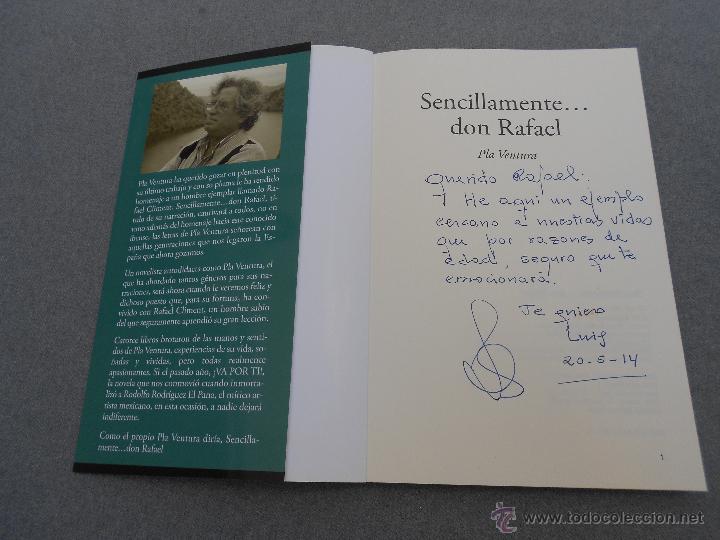 Pla Ventura ha querido gozar en plenitud con
su último trabajo y con su pluma le ha rendido
homenaje a un hombre ejemplar llamado Ra-
fael Climent. Sencillamente... don Rafael, tí-
tulo de su narración, cautivará a todos, no en
vano además del homenaje hacia este conocido
ibense, las letras de Pla Ventura señorean con
aquellas generaciones que nos legaron la Es-
paña que ahora gozamos
Un novelista autodidacta como Pla Ventura, el
que ha abordado tantos géneros para sus na-
rraciones, será ahora cuando le veremos feliz y
dichoso puesto que, para su fortuna, ha con-
vivido con Rafael Climent, un hombre sabio
del que seguramente aprendió su gran lección.
Catorce libros brotaron de las manos y senti-
dos de Pla Ventura, experiencias de su vida, so-
ñadas y vividas, pero todas realmente
apasionantes. Si el pasado año, ¡VA POR TI!,
la novela que nos conmovió cuando inmorta-
lizó a Rodolfo Rodríguez El Pana, el mítico ar-
tista mexicano, en esta ocasión, a nadie dejará
indiferente.
Como el propio Pla Ventura diría, Sencilla-
mente...don Rafael
Sencillamente...
don Rafael
Pla Ventura
Querido Rafael:
He aquí un ejemplo
cercano a nuestras vidas
que por razones de
edad, seguro que te
emocionará.
Te quiero
Luis
20-5-14
1
www.todocoleccion.net